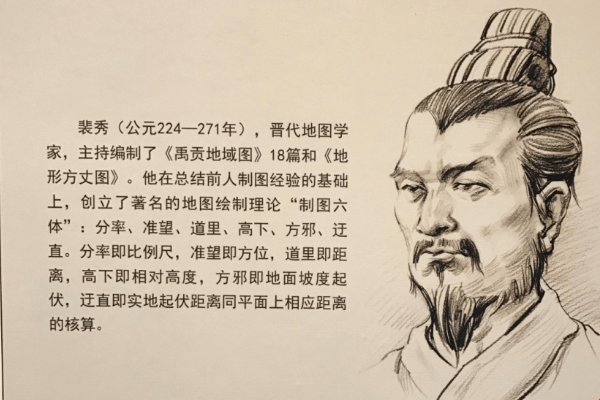 裴秀（公元224—271年），晋代地图学
家，主持编制了《禹贡地域图》18篇和《地
形方丈图》。他在总结前人制图经验的基础
上，创立了著名的地图绘制理论“制图六
体”：分率、准望、道里、高下、方邪、迂
直。分率即比例尺，准望即方位，道里即距
离，高下即相对高度，方邪即地面坡度起
伏，迂直即实地起伏距离同平面上相应距离
的核算。